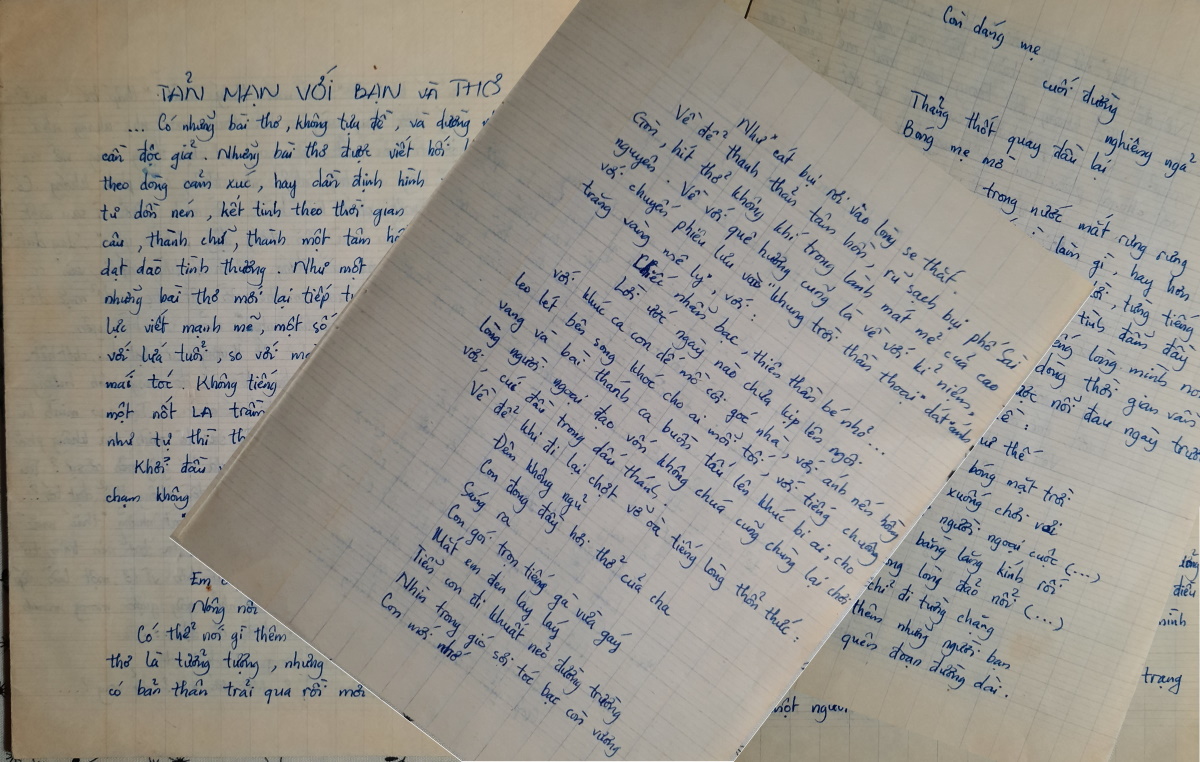 TẢN MẠN VỚI BẠN và THƠ
... Có những bài thơ, không tựa đề, và dường
cần độc giả. Những bài thơ được viết bởi
theo dòng cảm xúc, hay dần định hình
tư dồn nén, kết tinh theo thời gian
câu, thành chữ, thành một tâm
dạt dào tình thương. Như một
những bài thơ mới lại tiếp
lực viết mạnh mẽ, một số
với lứa tuổi, so với
mái tóc. Không tiếng
một nốt LA trầm
như tự thì
Khởi đầu
chạm không
Em
Nông nổi
Có thể nói gì thêm
thơ là tưởng tượng, nhưng
có bản thân trải qua rồi mới
Như cát bụi rơi vào lòng se thắt.
Về để thanh thản tâm hồn, rũ sạch bụi phố Sài
Gòn, hít thở không khí trong lành mát mẻ của cao
nguyên. Về với quê hương cũng là về với kỉ niệm,
với chuyến phiêu lưu vào khung trời thần thoại dát ánh
trăng vàng mê ly, với:
Chiếc nhẫn bạc, thiên thần bé nhỏ...
Lời ước ngày nao chưa kịp lên ngôi.
với khúc ca con dế mồ côi góc nhà, với ánh nến hồng
leo lét bên song khóc cho ai mỗi tối, với tiếng chuông
vang và bài thánh ca buồn tấu lên khúc bi ai, cho
lòng người ngoại đạo vốn không chúa cũng chùng lại chới
với cúi đầu trong dấu thánh.
Về để khi đi lại chợt vỡ oà tiếng lòng thổn thức:
Đêm không ngủ
Con đong đầy hơi thở của cha
Sáng ra
Con gói tròn tiếng gà vừa gáy
Mắt em đen lay láy
Tiễn con đi khuất nẻo đường trường
Nhìn trong gió sợi tóc bạc còn vương
Con mới nhớ
Còn dáng mẹ
cuối đường
nghiêng ngả
Thảng thốt quay đầu lại
Bóng mẹ mờ
trong nước mắt rưng rưng
làm gì, hay hơn
từng tiếng
tình đằm đầy
lòng mình
dòng thời gian vẫn
nỗi đau ngày trước
:
như thế
bóng mặt trời
xuống chơi với
người ngoại cuộc (...)
bằng lăng kính rồi
lòng đảo nổi (...)
chỉ đi từng chặng
thêm những người bạn
quên đoạn đường dài.
trạng
một người